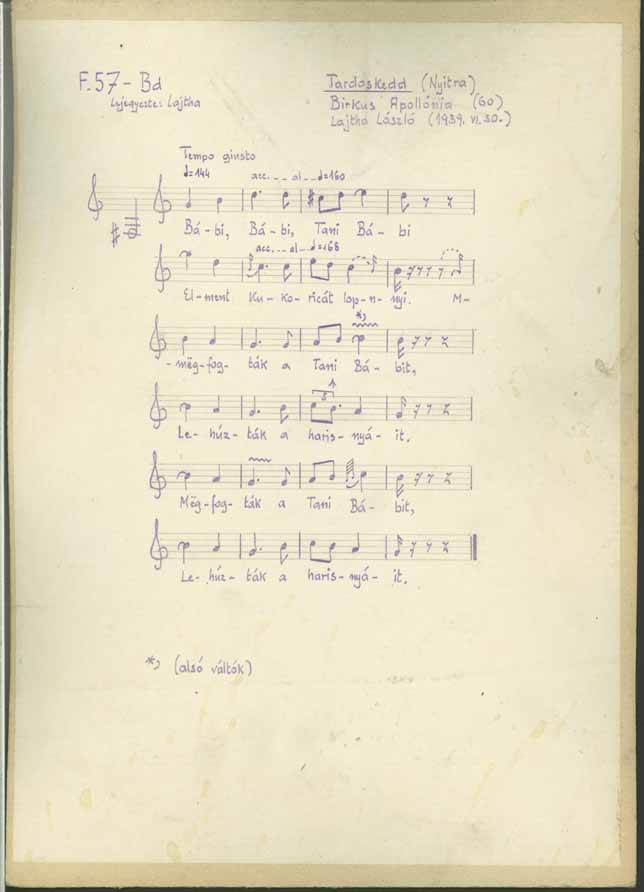 F.57 - Bd
Lejegyezte: Lajtha
Tardoskedd (Nyitra)
Birkus Apollónia (60)
Lajtha László (1939. VI. 30.)
Tempo giusto
=144 acc. _ _ al _ _ =160
Bá - bi, Bá - bi, Tani Bá - bi
acc. _ _ al _ _ =168
El - ment Ku - ko - ricát lop - n - nyi. M-
*,
- mëg - fog - ták a Tani Bá - bit,
3
Le - húz - ták a haris - nyá - it.
Mëg - fog - ták a Tani Bá - bit,
Le - húz - ták a haris - nyá - it.
*, (alsó váltók)